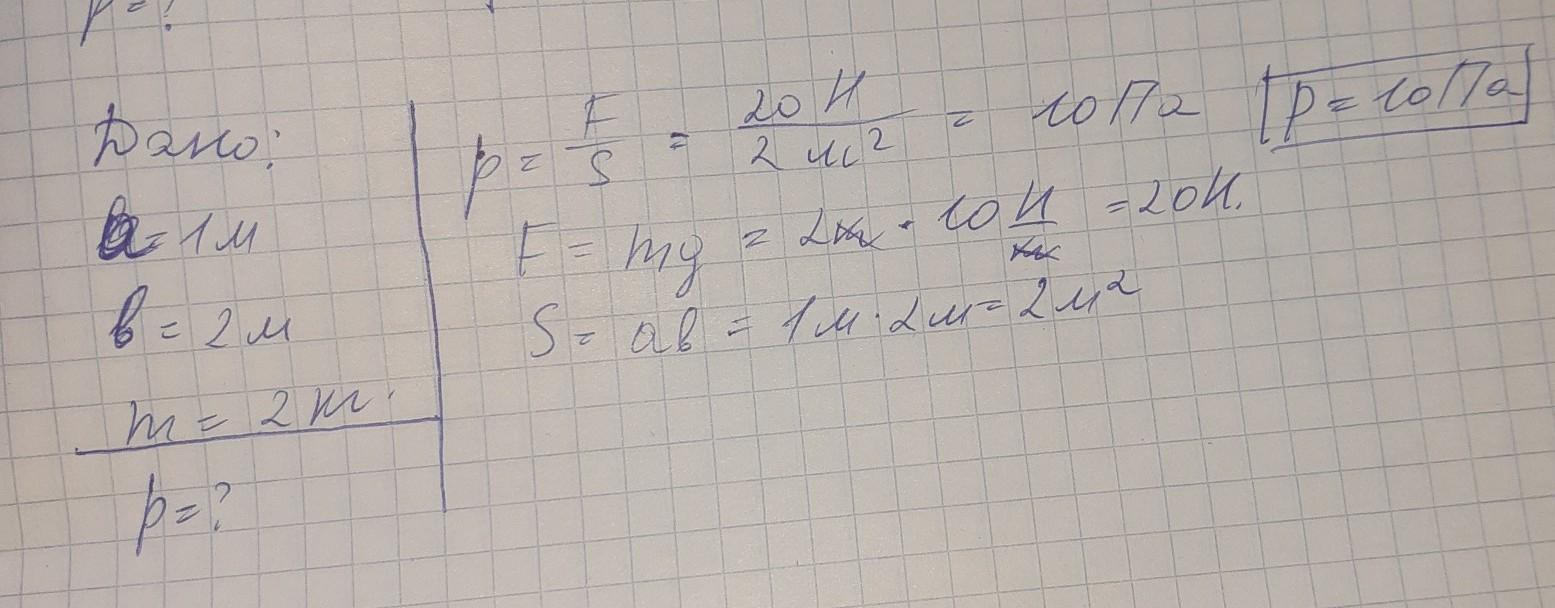 p = ?
Дано:
a = 1 м
b = 2 м
m = 2 кг.
p = ?
p = F/S = 20 Н / 2 м² = 10 Па p = 10 Па
F = mg = 2 кг · 10 Н/кг = 20 Н.
S = ab = 1 м · 2 м = 2 м²